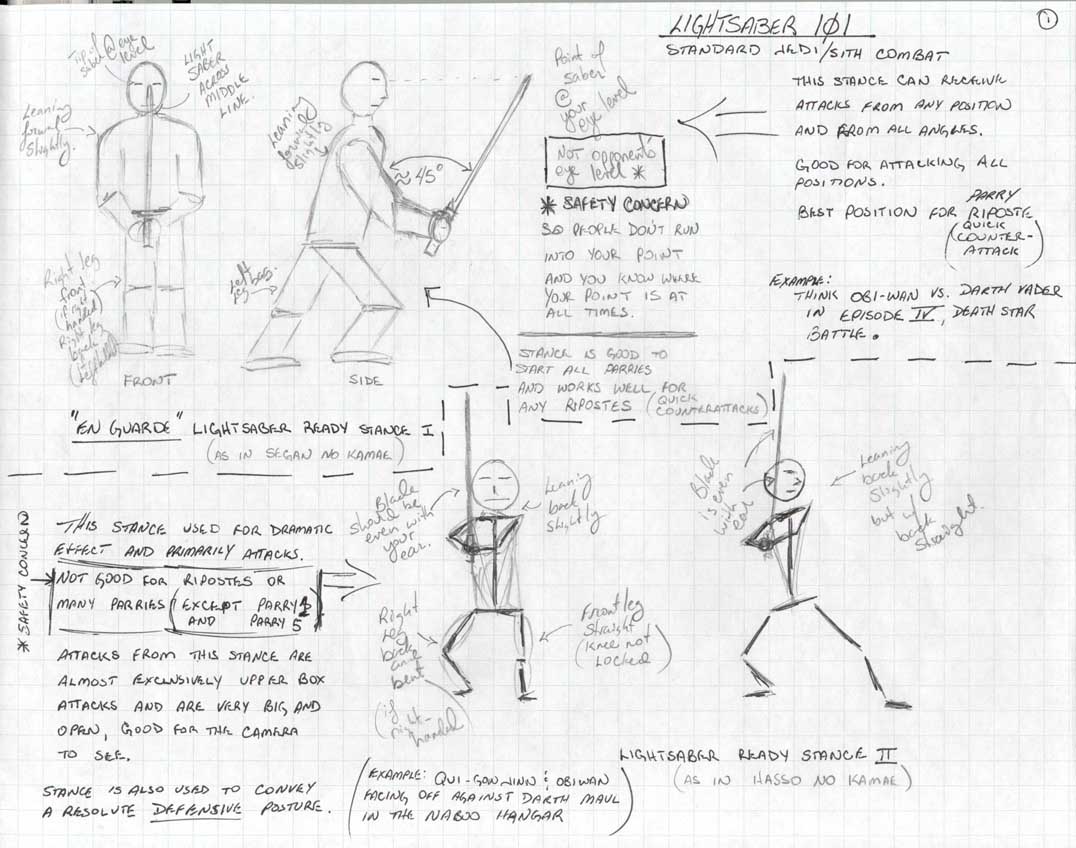 LIGHTSABER 101
1
STANDARD JEDI/SITH COMBAT
Tip of
saber @ eye
level
LIGHT
SABER
ACROSS
MIDDLE
LINE.
Leaning
forward
slightly.
Right leg
front
(if right
handed)
Right leg
back
if
lefthanded
FRONT
Leaning
forward
slightly
≈ 45°
Left leg
SIDE
Point of
saber
@
your
eye level
NOT opponent's
eye level *
* SAFETY CONCERN
SO PEOPLE DON'T RUN
INTO YOUR POINT
AND YOU KNOW WHERE
YOUR POINT IS AT
ALL TIMES.
THIS STANCE CAN RECEIVE
ATTACKS FROM ANY POSITION
AND FROM ALL ANGLES.
GOOD FOR ATTACKING ALL
POSITIONS.
PARRY
BEST POSITION FOR RIPOSTE
(QUICK
COUNTER-
ATTACK)
EXAMPLE:
THINK OBI-WAN VS. DARTH VADER
IN EPISODE IV, DEATH STAR
BATTLE.
STANCE IS GOOD TO
START ALL PARRIES
AND WORKS WELL FOR
ANY RIPOSTES (QUICK
COUNTERATTACKS)
"EN GUARDE" LIGHTSABER READY STANCE I
(AS IN SEGAN NO KAMAE)
* SAFETY CONCERN
THIS STANCE USED FOR DRAMATIC
EFFECT AND PRIMARILY ATTACKS.
NOT GOOD FOR RIPOSTES OR
MANY PARRIES (EXCEPT PARRY 4
AND PARRY 5
ATTACKS FROM THIS STANCE ARE
ALMOST EXCLUSIVELY UPPER BOX
ATTACKS AND ARE VERY BIG AND
OPEN, GOOD FOR THE CAMERA
TO SEE.
STANCE IS ALSO USED TO CONVEY
A RESOLUTE DEFENSIVE POSTURE.
Blade
should be
even with
your
ear.
Leaning
back
slightly
Right
leg
back
and
bent
(if
right-
handed)
Front leg
straight
(knee not
locked)
Blade
is even
with
ear
Leaning
back
slightly
but w/
back
straight.
(EXAMPLE: QUI-GON JINN & OBIWAN
FACING OFF AGAINST DARTH MAUL
IN THE NABOO HANGAR)
LIGHTSABER READY STANCE II
(AS IN HASSO NO KAMAE)